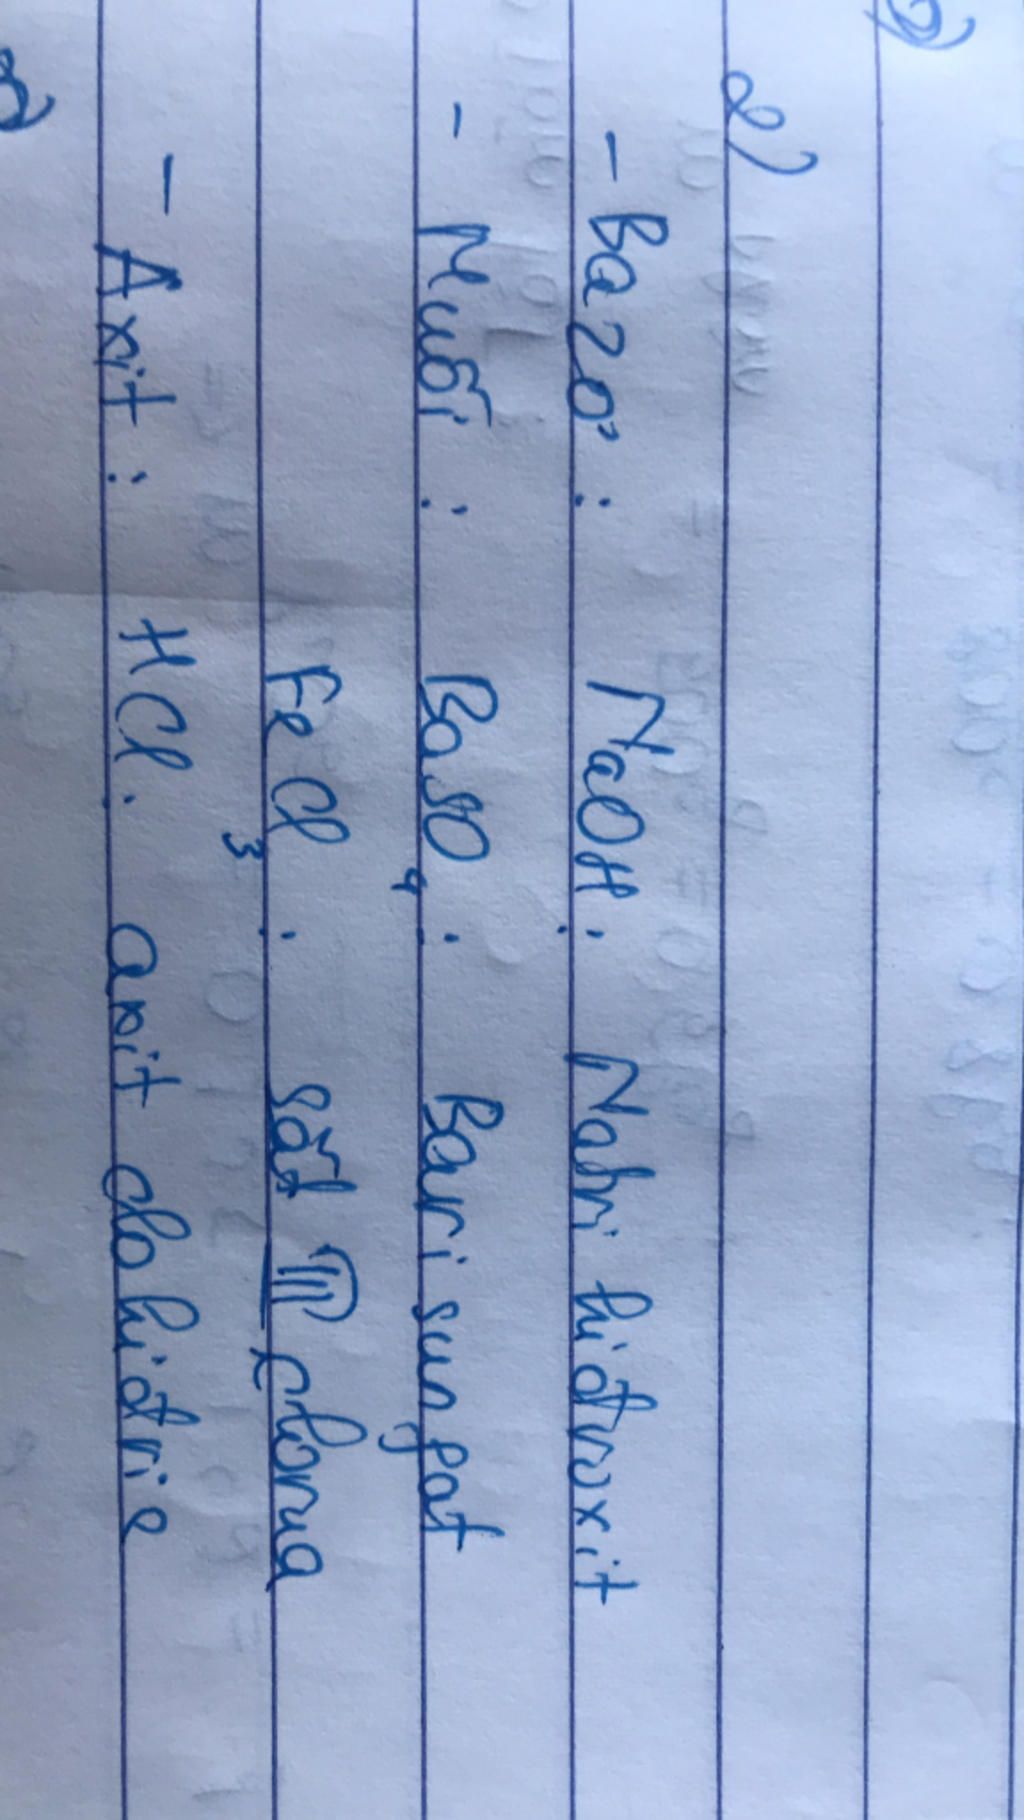 2)
- Bazơ : NaOH : Natri hiđroxit
- Muối : BaSO4 : Bari sunfat
FeCl3 : sắt III clorua
- Axit : HCl : axit clohiđric